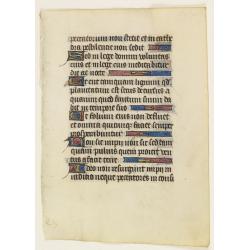 peccatorum non stetit et in cathe
dra pestilencie non sedit
Sed in lege domini voluntas
eius et in lege eius meditabitur
die ac nocte
Et erit tanquam lignum qd
plantatum est secus decursus a
quarum quod fructum suum da
bit in tempore suo
Et folium eius non defluet
et omnia quecunque faciet semper
prosperabuntur
Non sic impii non sic sed tam
quam pulvis quem proicit ven
tus a facie terre
Ideo non resurgunt impii in
iudicio neque peccatores in consi